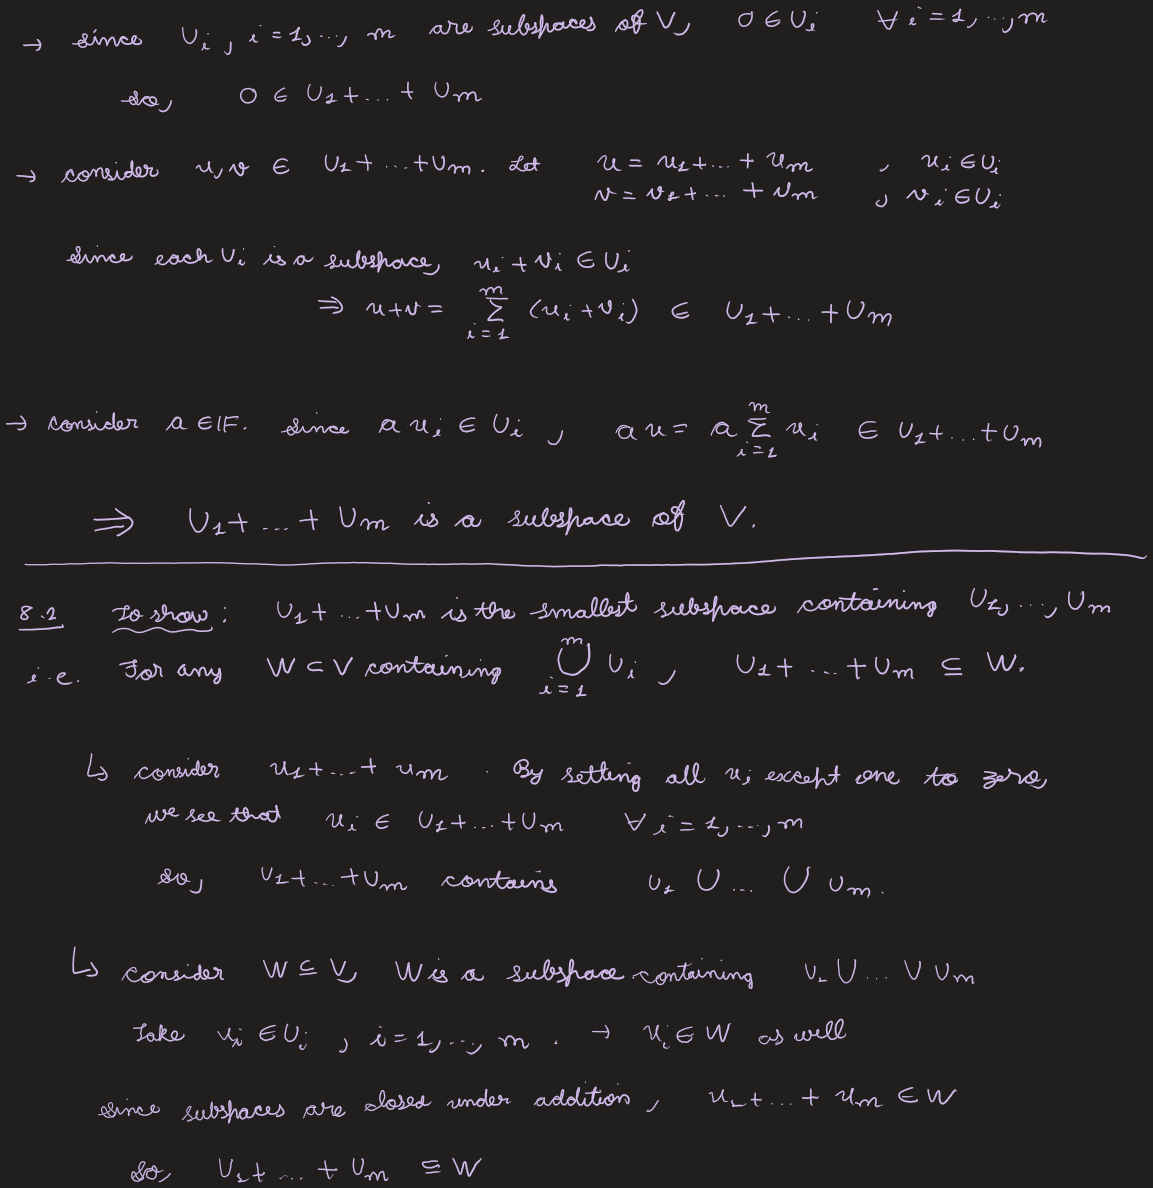 → since Uᵢ, i = 1, ..., m are subspaces of V, 0 ∈ Uᵢ ∀ i = 1, ..., m
so, 0 ∈ U₁ + ... + Uₘ
→ consider u, v ∈ U₁ + ... + Uₘ. Let u = u₁ + ... + uₘ , uᵢ ∈ Uᵢ
v = v₁ + ... + vₘ , vᵢ ∈ Uᵢ
Since each Uᵢ is a subspace, uᵢ + vᵢ ∈ Uᵢ
⇒ u + v = ∑ᵢ₌₁ᵐ (uᵢ + vᵢ) ∈ U₁ + ... + Uₘ
→ consider a ∈ 𝔽. since a uᵢ ∈ Uᵢ , a u = a ∑ᵢ₌₁ᵐ uᵢ ∈ U₁ + ... + Uₘ
⇒ U₁ + ... + Uₘ is a subspace of V.
8.2 To show: U₁ + ... + Uₘ is the smallest subspace containing U₁, ..., Uₘ
i.e. For any W ⊂ V containing ⋃ᵢ₌₁ᵐ Uᵢ , U₁ + ... + Uₘ ⊆ W.
↳ consider u₁ + ... + uₘ . By setting all uᵢ except one to zero,
we see that uᵢ ∈ U₁ + ... + Uₘ ∀ i = 1, ..., m
so, U₁ + ... + Uₘ contains U₁ ∪ ... ∪ Uₘ.
↳ consider W ⊆ V, W is a subspace containing U₁ ∪ ... ∪ Uₘ
Take uᵢ ∈ Uᵢ , i = 1, ..., m . → uᵢ ∈ W as well
since subspaces are closed under addition, u₁ + ... + uₘ ∈ W
so, U₁ + ... + Uₘ ⊆ W